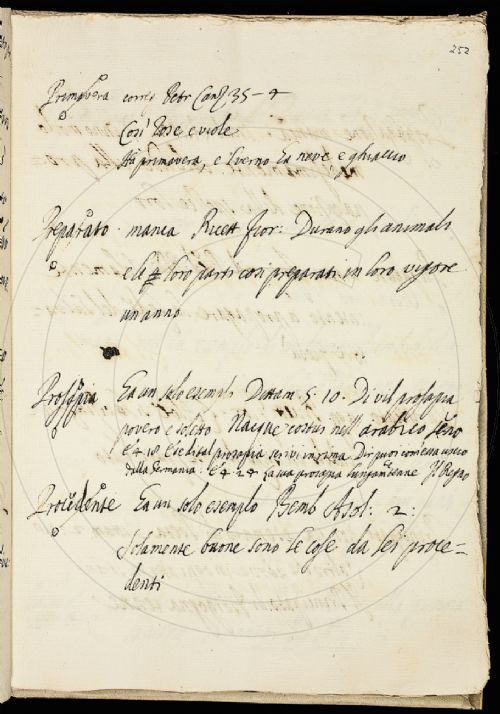 252
Primavera corr. Petr Canz 35 - 4
Così rose e viole
Ha primavera, e il verno ha neve e ghiaccio
Preparato manca Ricett fior: Durano gli animali
e le loro parti così preparati in loro vigore
un anno
Prosapia Ha un solo esempl. Dittam 5. 10. Di vil prosapia
povero e soletto Nacque costui nell' arabico seno
e 4 18 E se di tal prosapia scrivi in rima Dir puoi
della Romania. E 4. 24 La sua prosapia Il Regno
Procedente Ha un solo esempio Bemb Asol: 2:
Solamente buone sono le cose da lei proce=
denti